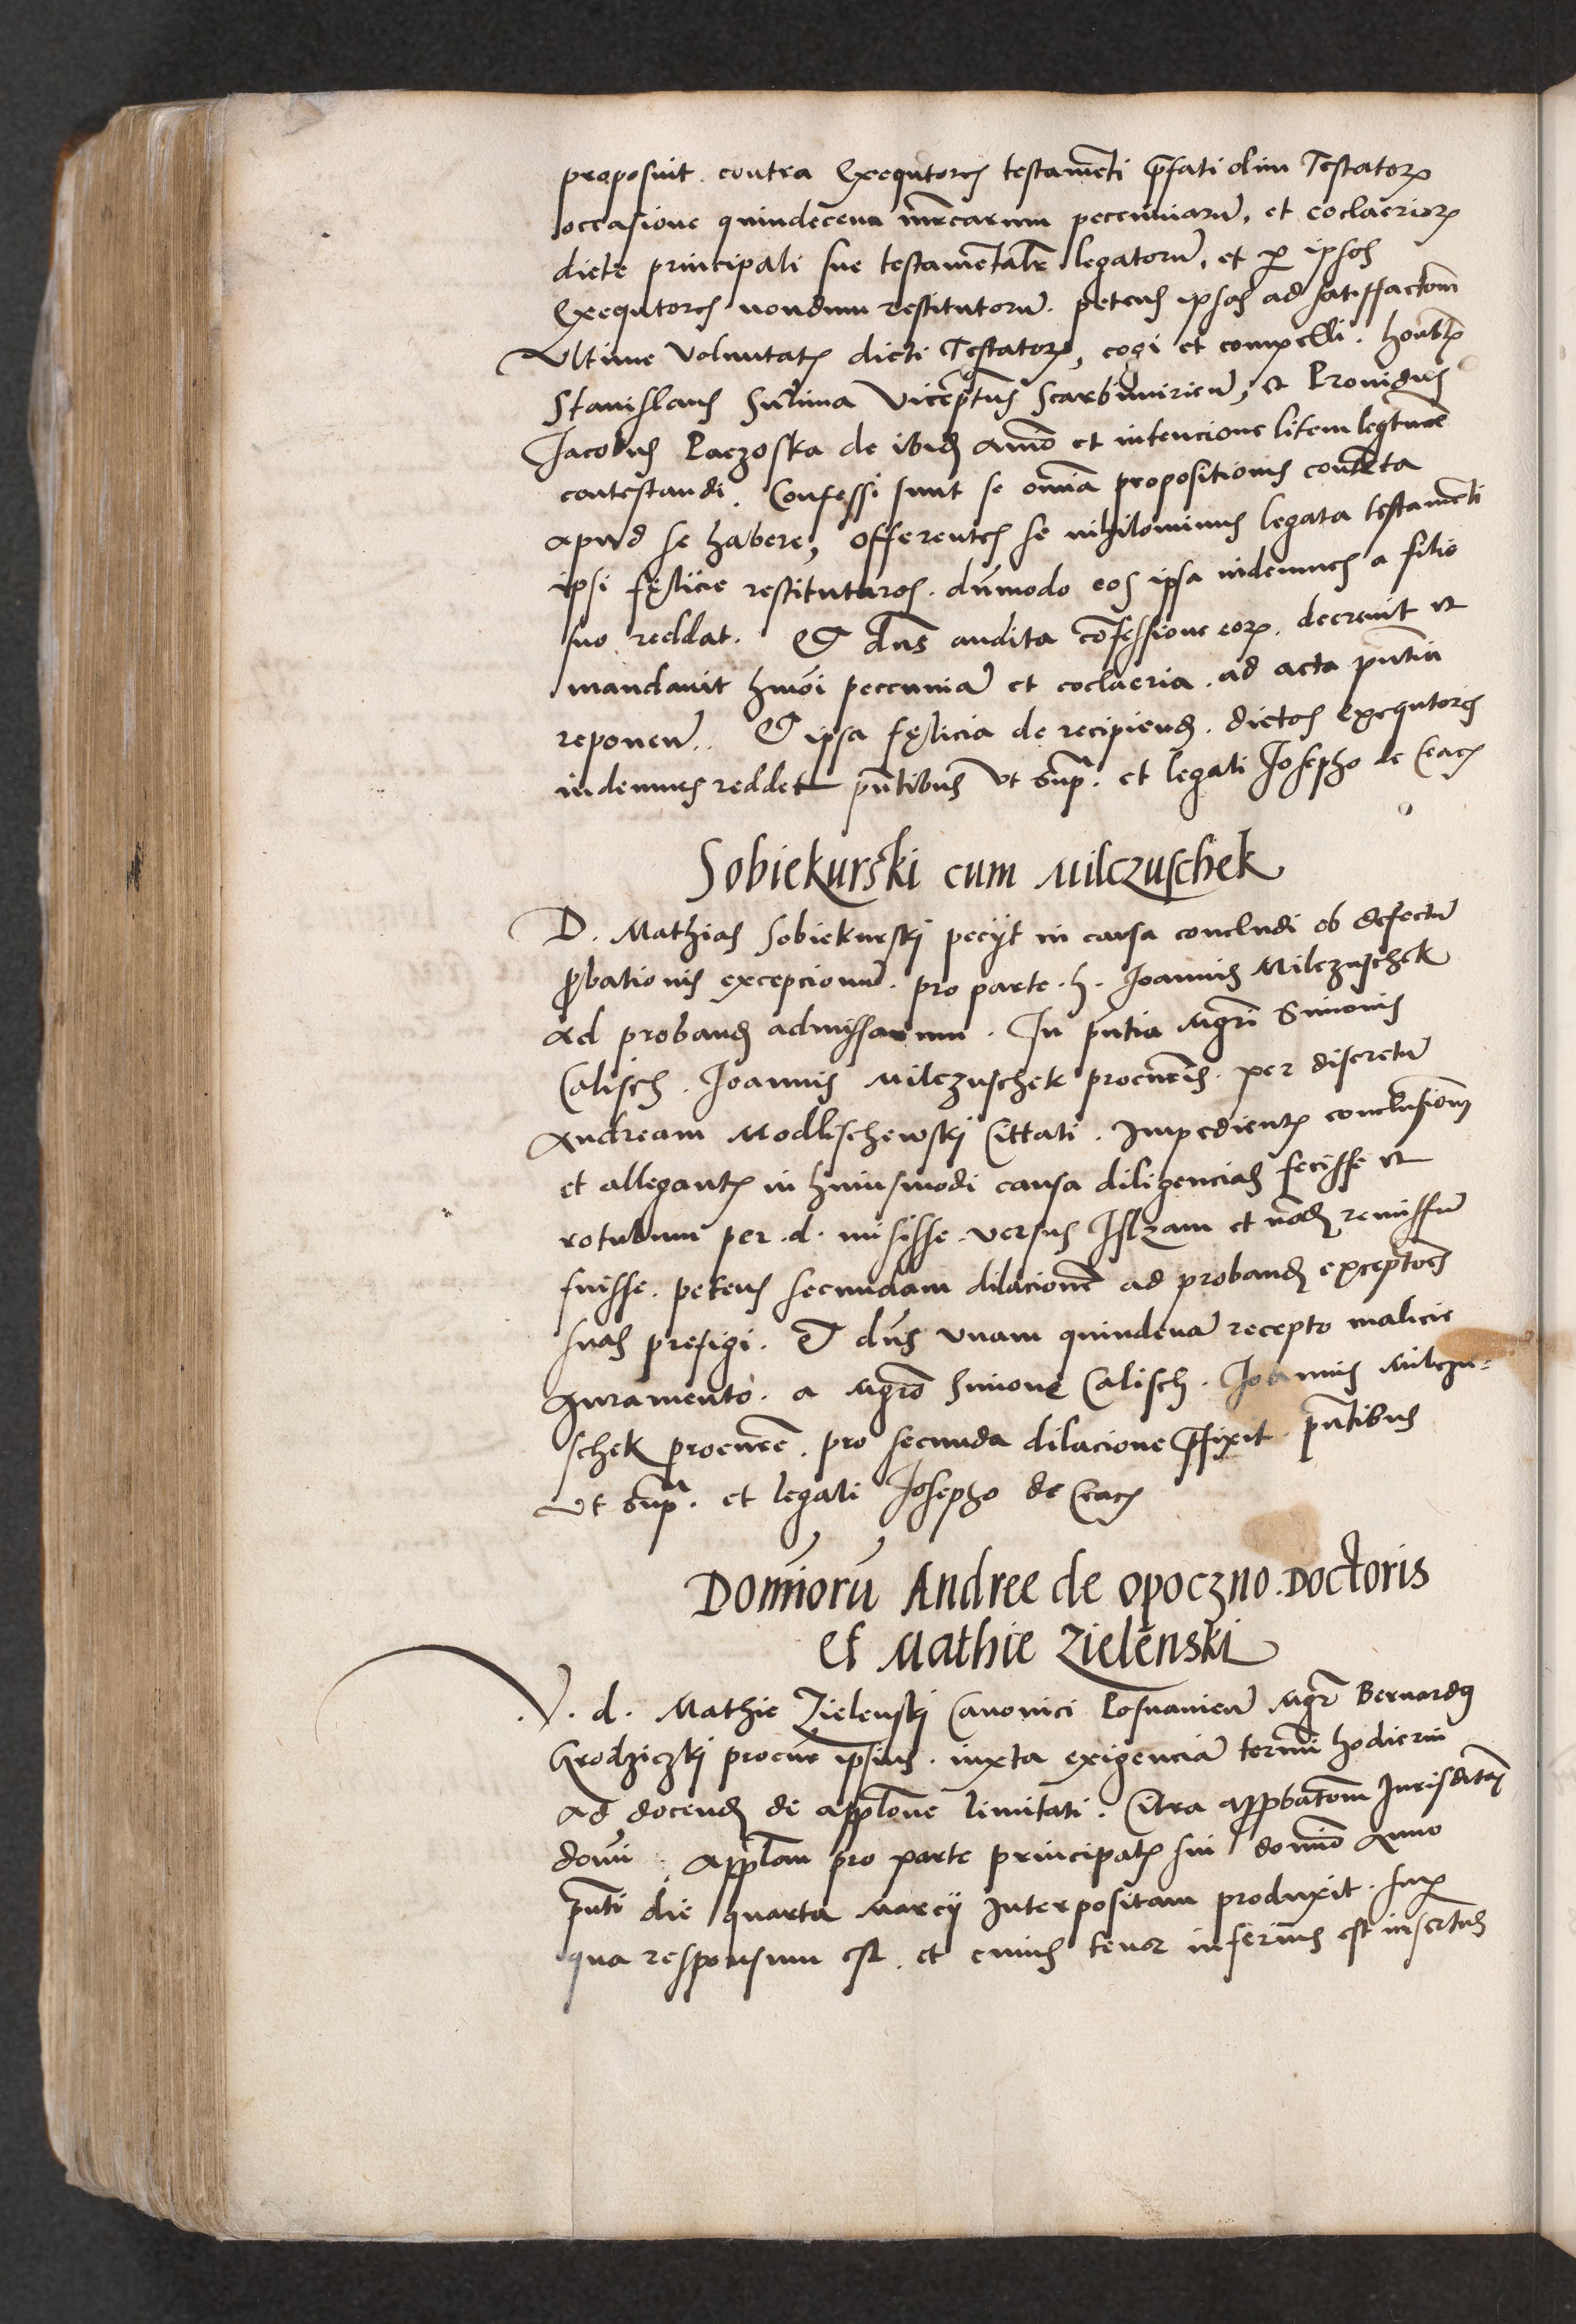 proposuit contra Exequtores testameti p̃fati olim Testatorꝭ
occasione quindecem mr̃carum peccuniarũ, et coclaeriorꝭ
dicte principali sue testamẽtalr̃ legatorũ, et ꝑ ipsos
Exequtores nondum restitutorũ. petens ipsos ad satisfactom̃
Ultime Voluntatꝭ dicti Testatorꝭ, cogi et compelli. honãblꝭ
Stanislaus Sulima Viceptũs Scarbimirieñ, et Providus
Iacobus Paczoska de ibidꝫ animo et intencione litem legtime
contestandi. Confessi sunt se omnia propositionis contẽta
apud se habere, offerentes se nihilominus legata testameti
ipsi fęlicie restituturos. dũmodo eos ipsa indemnes a filio
suo reddat. Et dñs audita cõfessione eorꝭ. decrevit et
mandavit hmõi peccuniã et coclaeria. ad acta pñtia
reponeñ. Et ipsa fęlicia de recipiendꝫ. dictos exequtores
indemnes reddet pñtibus Ut sup̃. et legali Iosepho de Cracꝭ
Sobiekurski cum Milczuschek
D. Mathias Sobiekurskj peciit in causa concludi ob defectũ
ꝓbationis excepcionũ. pro parte. h. Ioannis Milczuschek
ad probandꝫ admissarum. In pñtia Mgrĩ Simonis
Calisch. Ioannis Milczuschek procurẽis. per discretũ
Andream Modlischewskj Cittati. Impedientꝭ conclusiom̃
et allegantꝭ in huiusmodi causa diligencias fecisse et
rotulum per. d. misisse. versus Ilzam et nõdꝫ remissũ
fuisse. petens secundam dilacionẽ ad probandꝫ exceptões
suas prefigi. Et dñs unam quindenã recepto malicie
Iuramento. a Mgrõ Simone Calisch. Ioannis Milczu=
schek procurẽ. pro secunda dilacione p̃fixit. pñtibus
Ut sup̃. et legali Iosepho de Cracꝭ
Dominorũ Andree de Opoczno. Doctoris
et Mathie Zielenski
V. d. Mathie Zielenskj Canonici Posnanieñ Mgr̃ Bernardꝯ
Grodziczkj procur̃ ipsius. iuxta exigenciã termi hodierni
ad docendꝫ de applõne limitati. Citra appbatom̃ Iurisdictꝭ
domi. applãm pro parte principalꝭ sui domĩo Anno
pñti die quarta Marcij Interpositam produxit. supꝭ
qua responsum est. et cuius tenor inferius est insertus